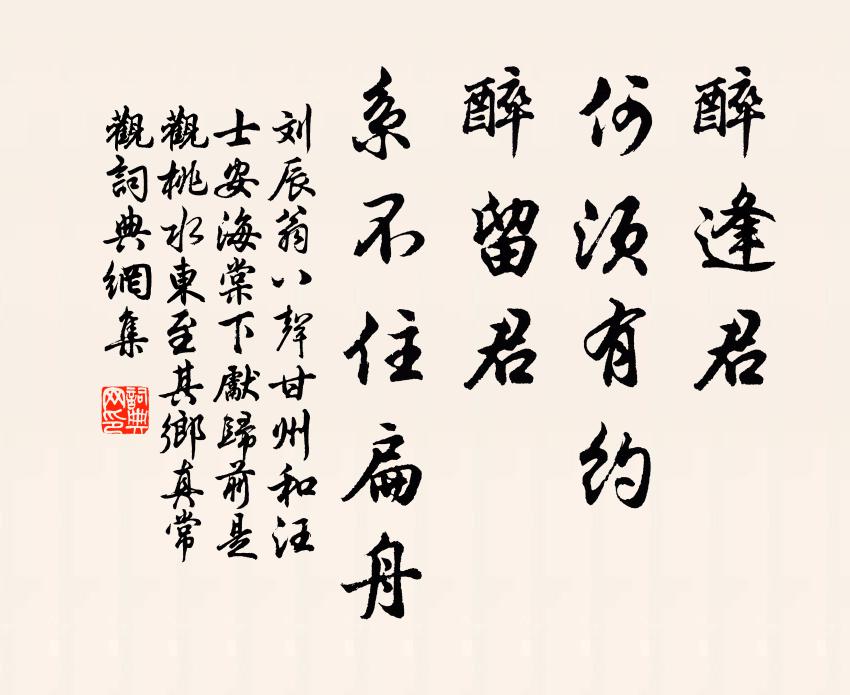 醉逢君
何須有約
醉留君
系不住扁舟
刘辰翁八聲甘州和汪
士安海棠下獻歸前是
觀桃水東至其鄉真常
觀詞典網集
詞典
网印